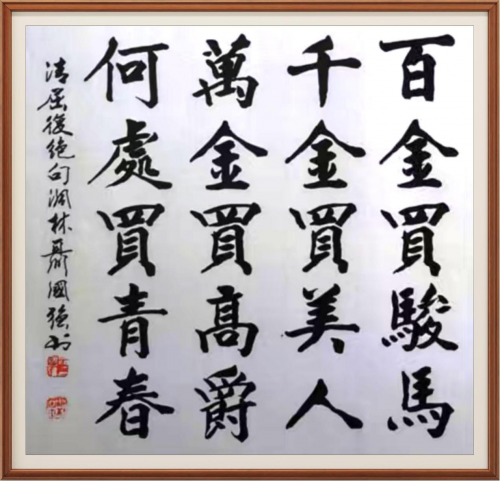 百金買駿馬
千金買美人
萬金買高爵
何處買青春
清屈復絕句洞林聶國強书